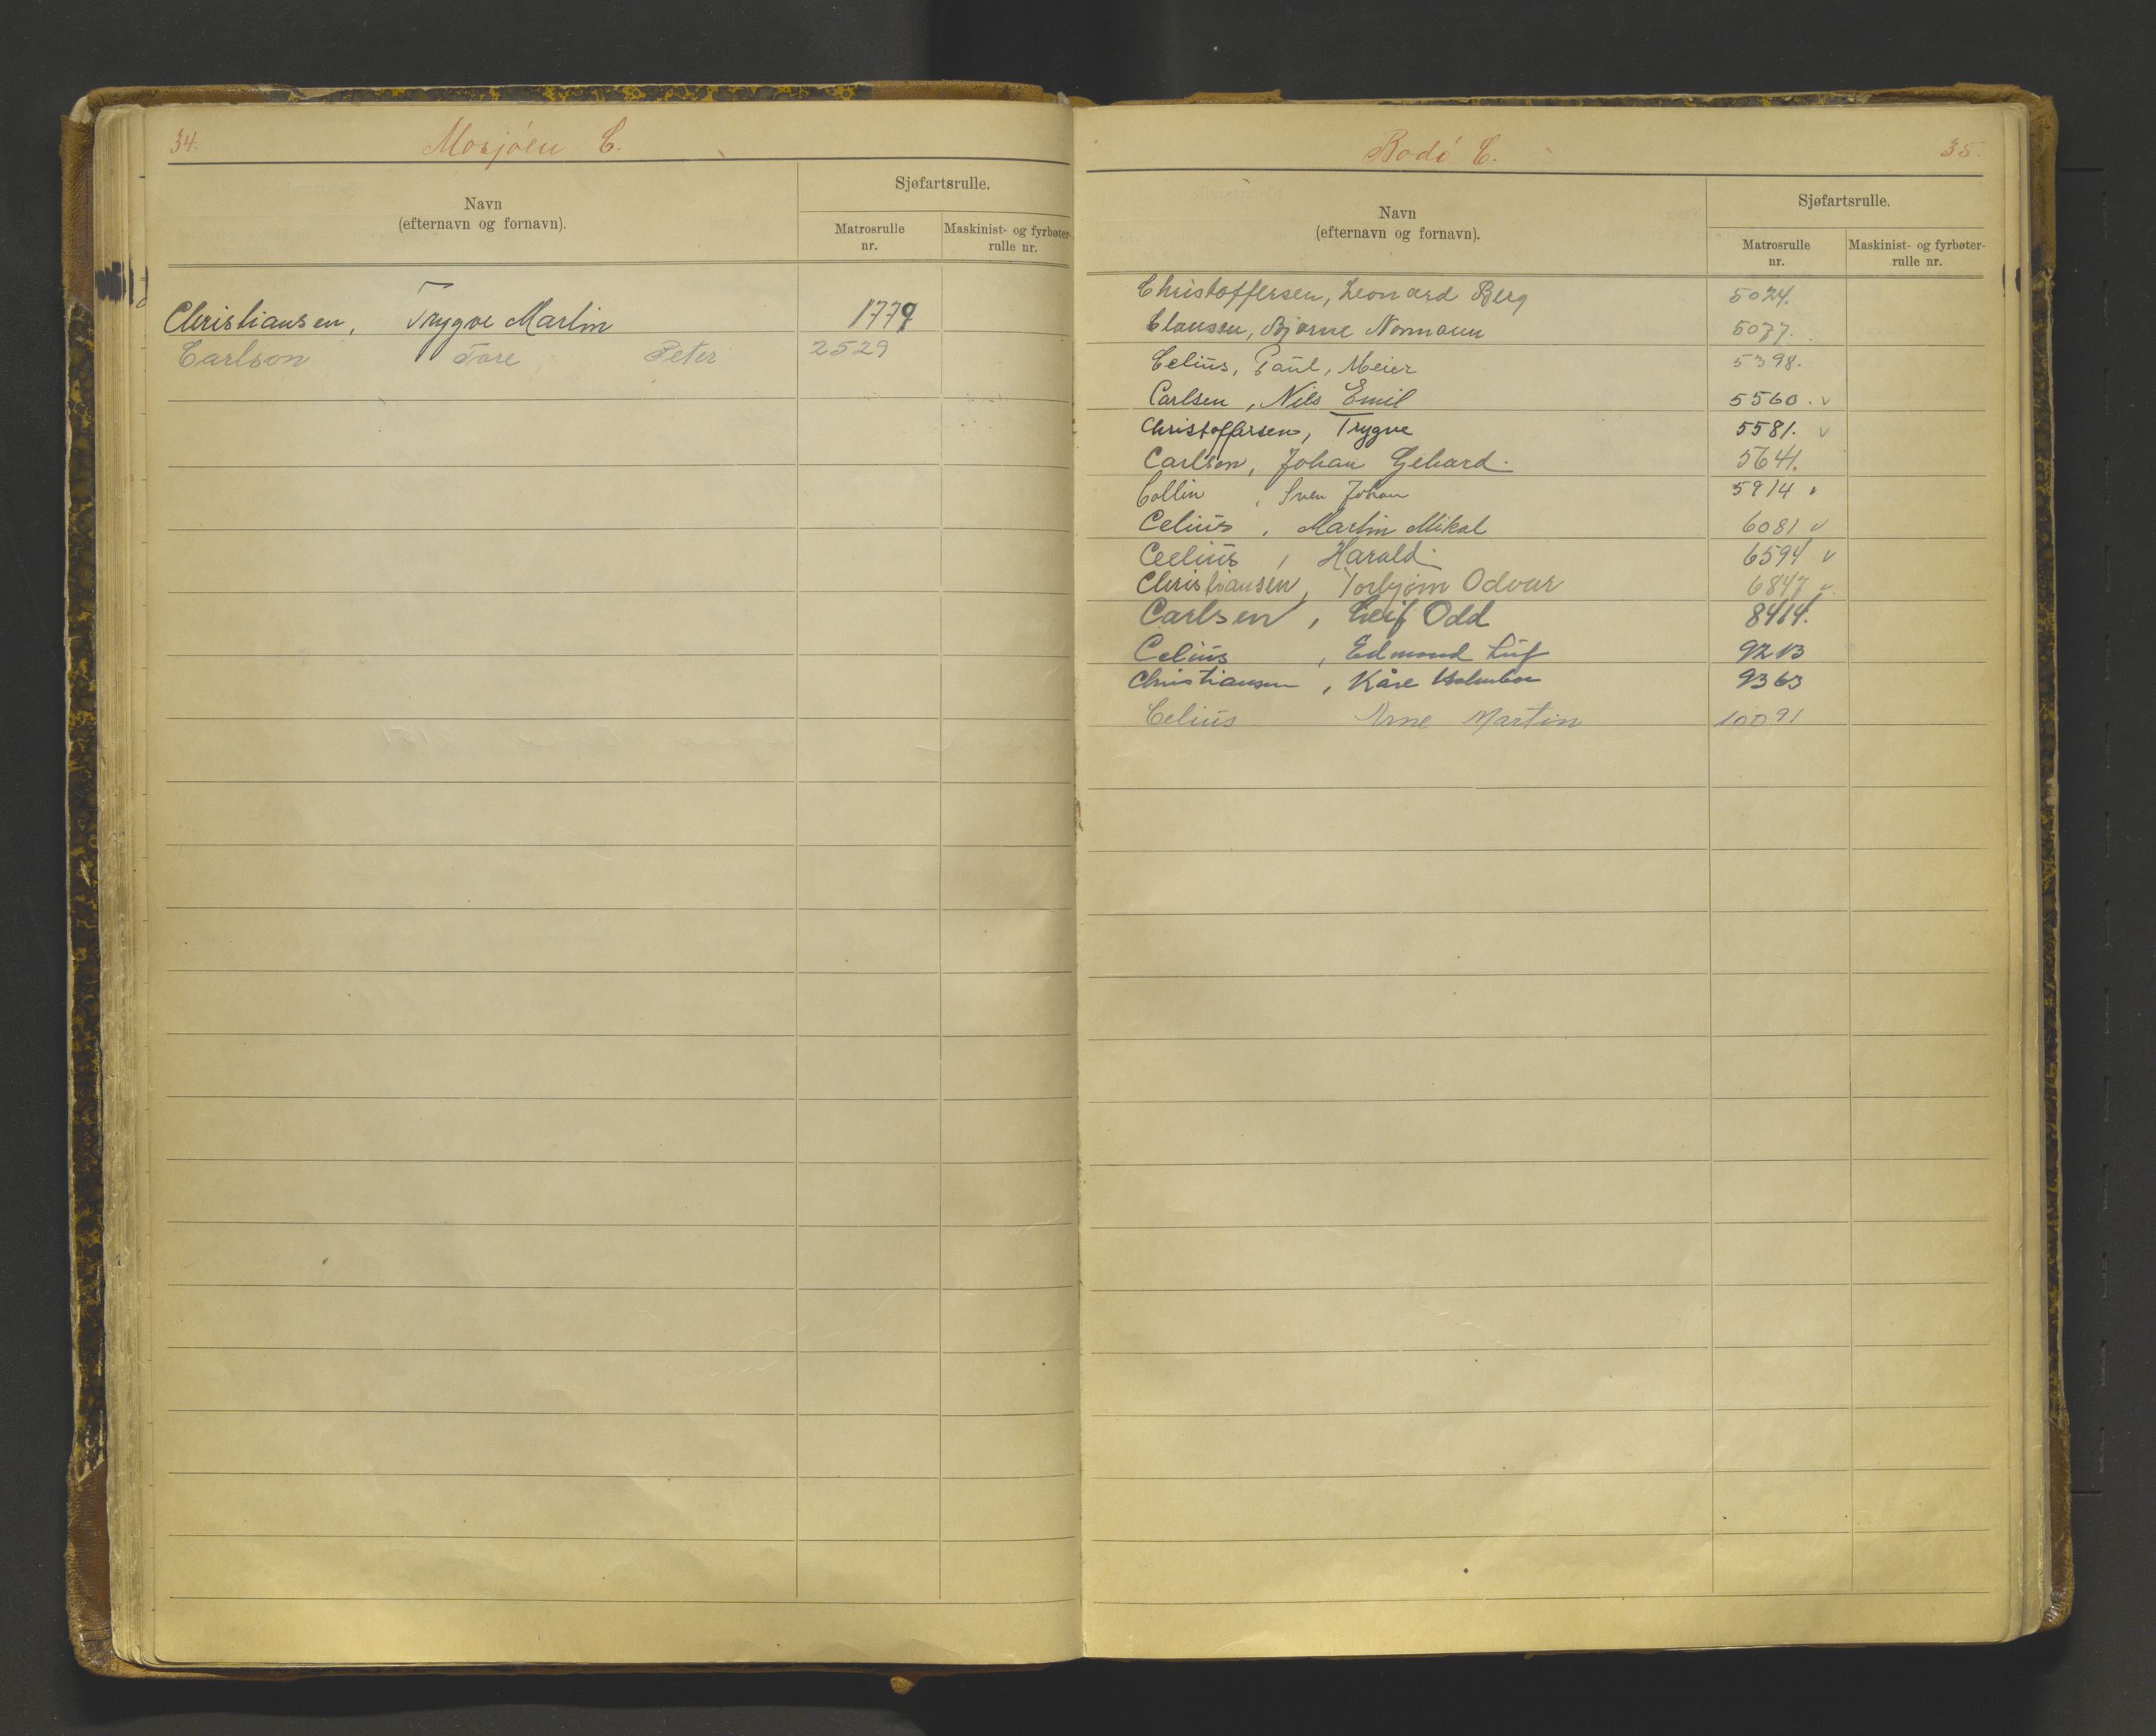 34.
Mosjöen C.
Navn
(efternavn og fornavn).
Sjøfartsrulle.
Matrosrulle
nr.
Maskinist- og fyrbøter-
rulle nr.
Christiansen, Trygve Martin 1779
Carlson Tore Peter 2529
Bodö C.
35.
Navn
(efternavn og fornavn).
Sjøfartsrulle.
Matrosrulle
nr.
Maskinist- og fyrbøter-
rulle nr.
Christoffersen, Leonard Berg 5024.
Clausen, Bjarne Normann 5077.
Celius, Paul, Meier 5398.
Carlsen, Nils Emil 5560. v
Christoffersen, Trygve 5581. v
Carlsen, Johan Gehard. 5641.
Collin, Sven Johan 5914 v
Celius, Martin Mikal 6081 v
Ceelius, Harald. 6594 v
Christiansen, Torbjørn Odvar 6847 v
Carlsen, Leif Odd 8414.
Celius, Edmond 9213
Christiansen, Kåre Holmboe 9363
Celius Arne Martin 10091